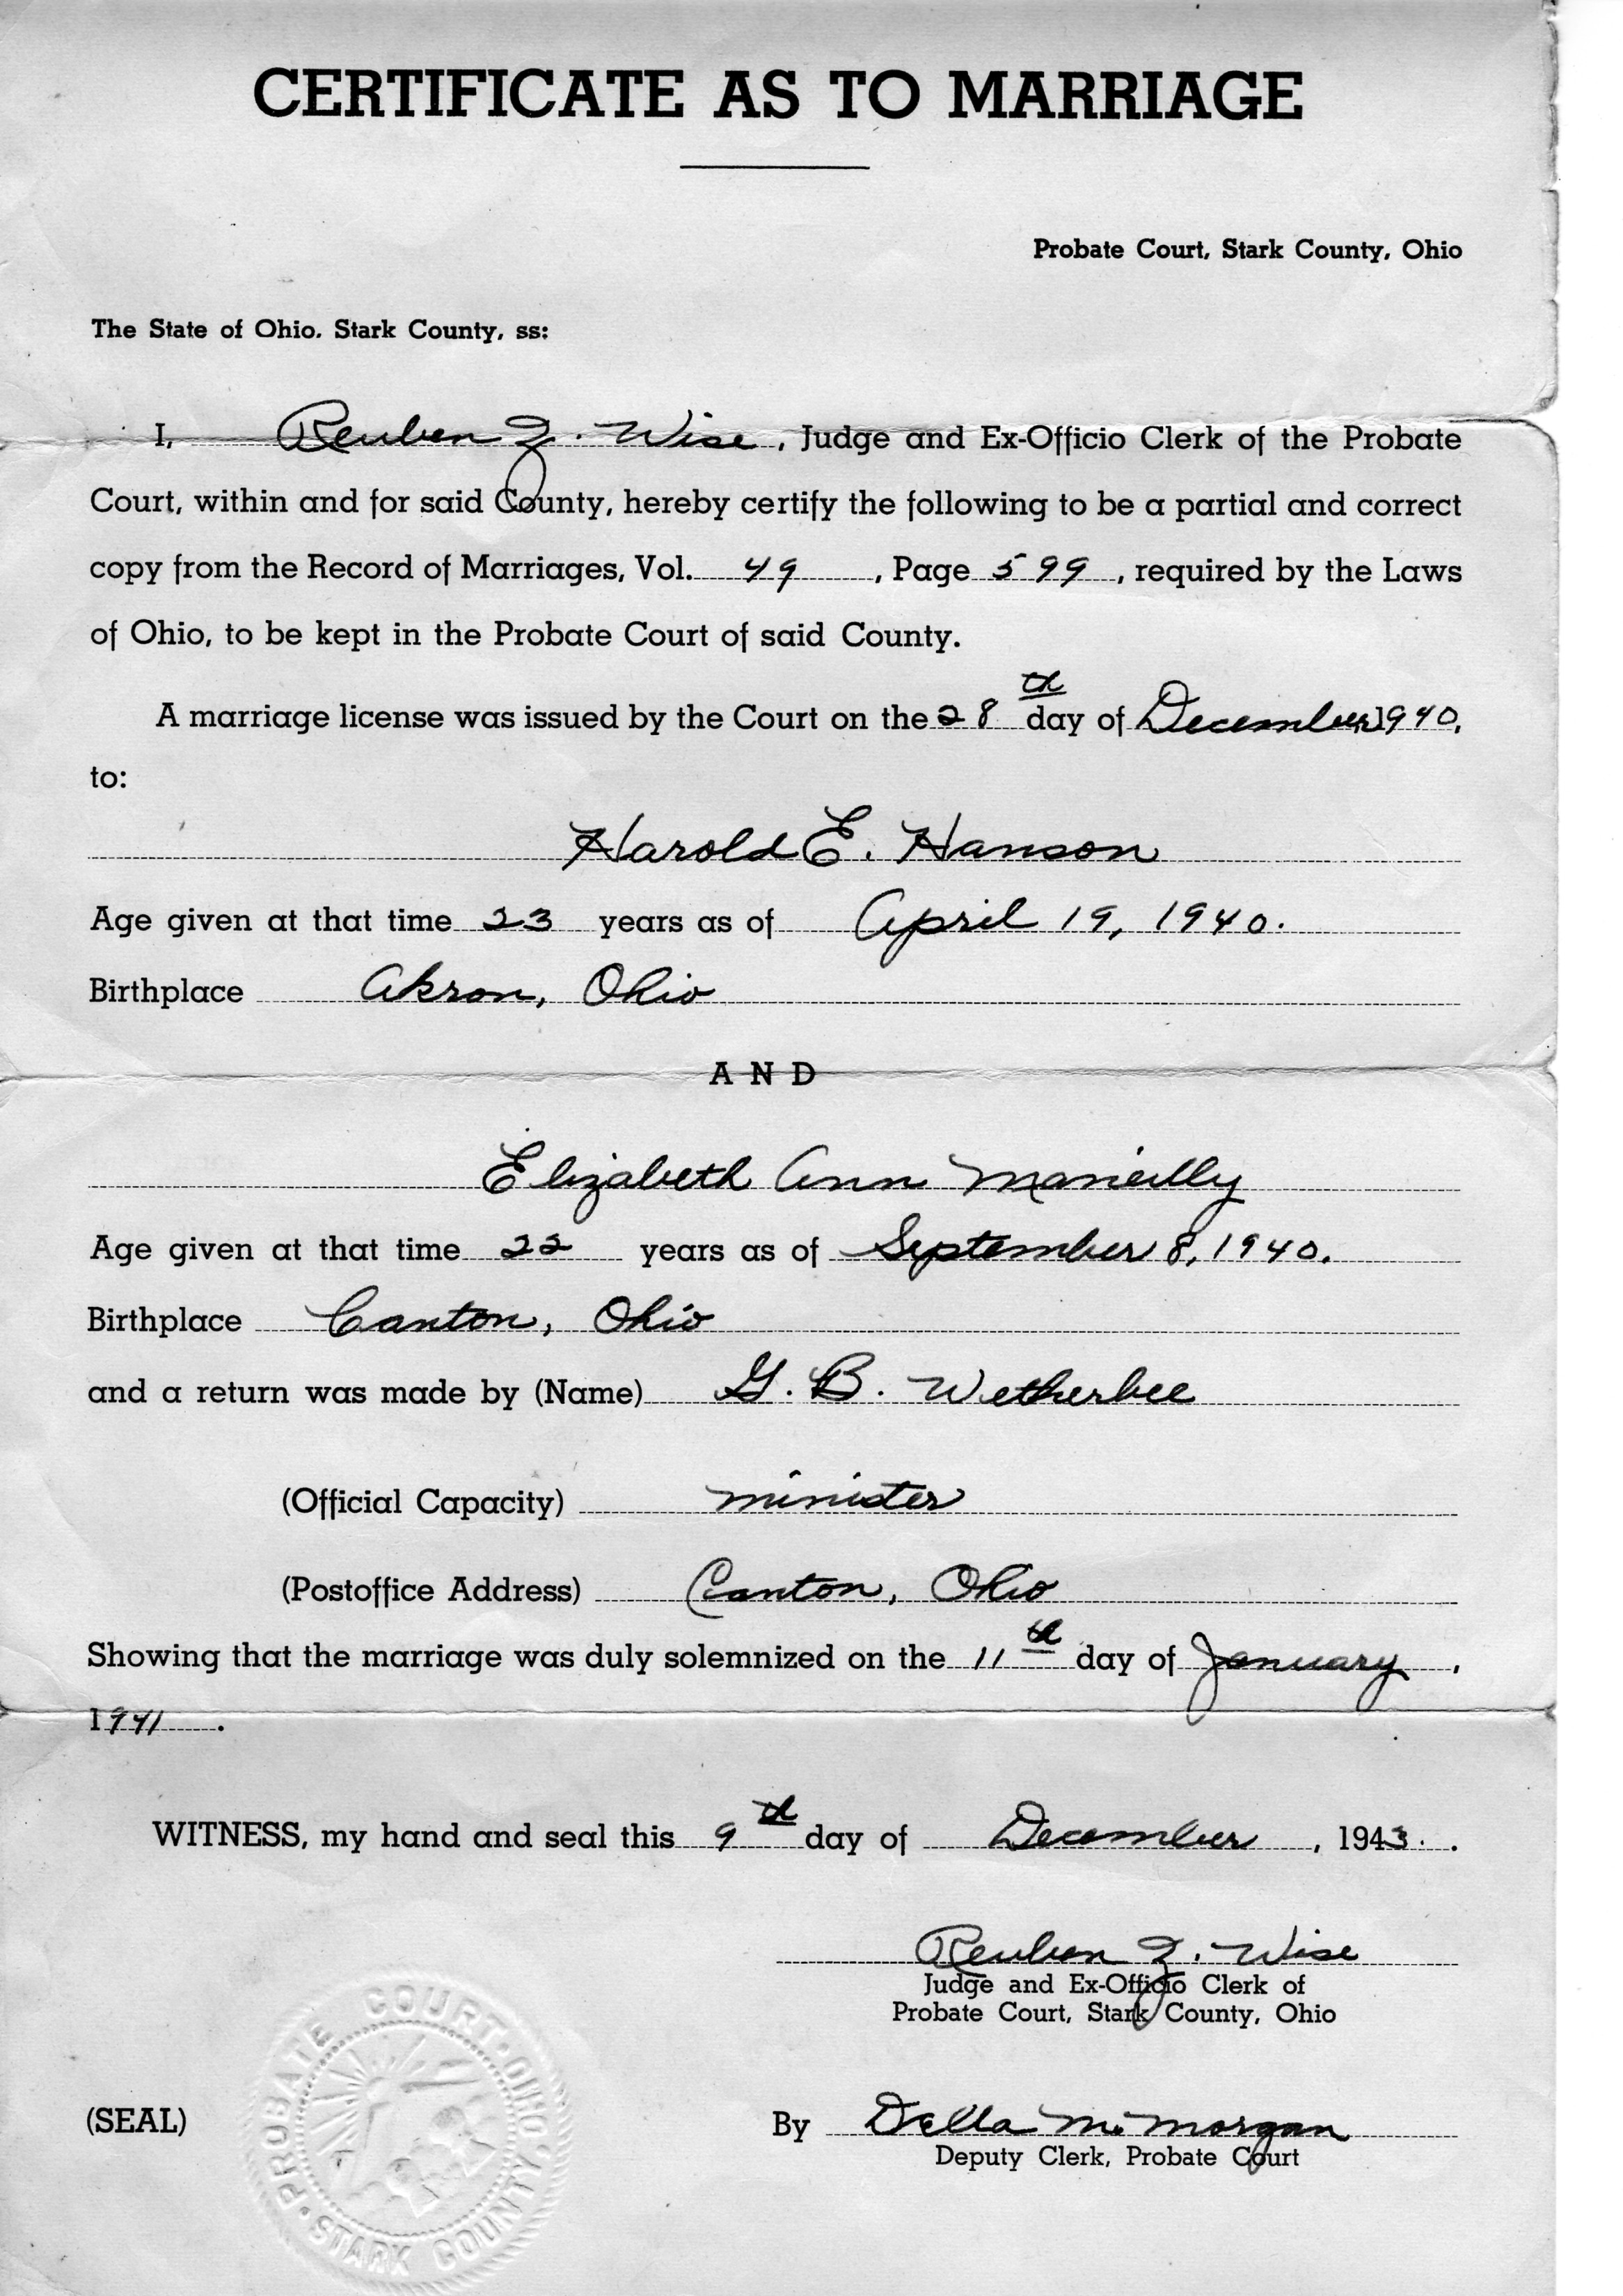 CERTIFICATE AS TO MARRIAGE
Probate Court, Stark County, Ohio
The State of Ohio. Stark County, ss:
I, Reuben Z. Wise, Judge and Ex-Officio Clerk of the Probate
Court, within and for said County, hereby certify the following to be a partial and correct
copy from the Record of Marriages, Vol. 49, Page 599, required by the Laws
of Ohio, to be kept in the Probate Court of said County.
A marriage license was issued by the Court on the 28th day of December, 1940,
to:
Harold E. Hanson
Age given at that time 23 years as of April 19, 1940.
Birthplace Akron, Ohio
AND
Elizabeth Ann
Age given at that time 22 years as of September 8, 1940.
Birthplace Canton, Ohio
and a return was made by (Name) G. B. Wetherbee
(Official Capacity) minister
(Postoffice Address) Canton, Ohio
Showing that the marriage was duly solemnized on the 11th day of January,
1941.
WITNESS, my hand and seal this 9th day of December, 1943.
Reuben Z. Wise
Judge and Ex-Officio Clerk of
Probate Court, Stark County, Ohio
(SEAL)
PROBATE COURT · OHIO · STARK COUNTY ·
By Della M. Morgan
Deputy Clerk, Probate Court